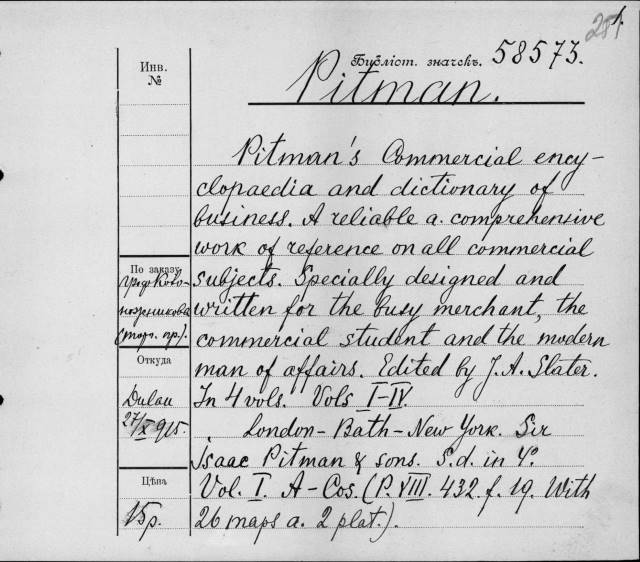 281.
Библіот. значекъ. 58573.
Pitman.
Инв.
№
Pitman's Commercial ency-
clopaedia and dictionary of
business. A reliable a. comprehensive
work of reference on all commercial
subjects. Specially designed and
written for the busy merchant, the
commercial student and the modern
man of affairs. Edited by J. A. Slater.
In 4 vols. Vols I-IV.
London-Bath-New York. Sir
Isaac Pitman & sons. S.d. in 4º
Vol. I. A-Cos. (P. VIII. 432. f. 19. With
26 maps a. 2 plat.).
По заказу
(торг. пр.).
Откуда
Dulau
27/X 915.
Цѣна
15 р.